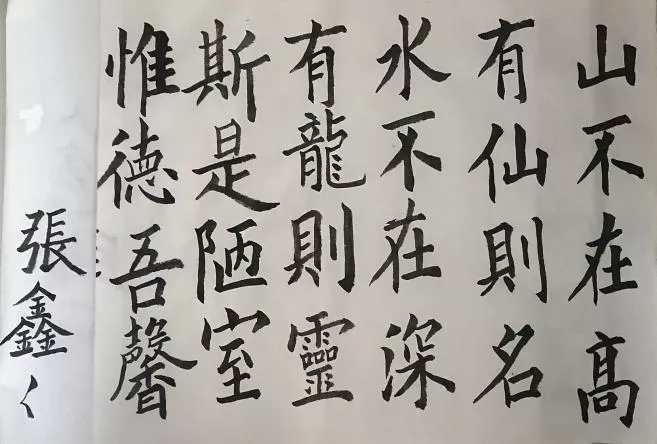 山不在高
有仙則名
水不在深
有龍則靈
斯是陋室
惟德吾馨
張鑫く